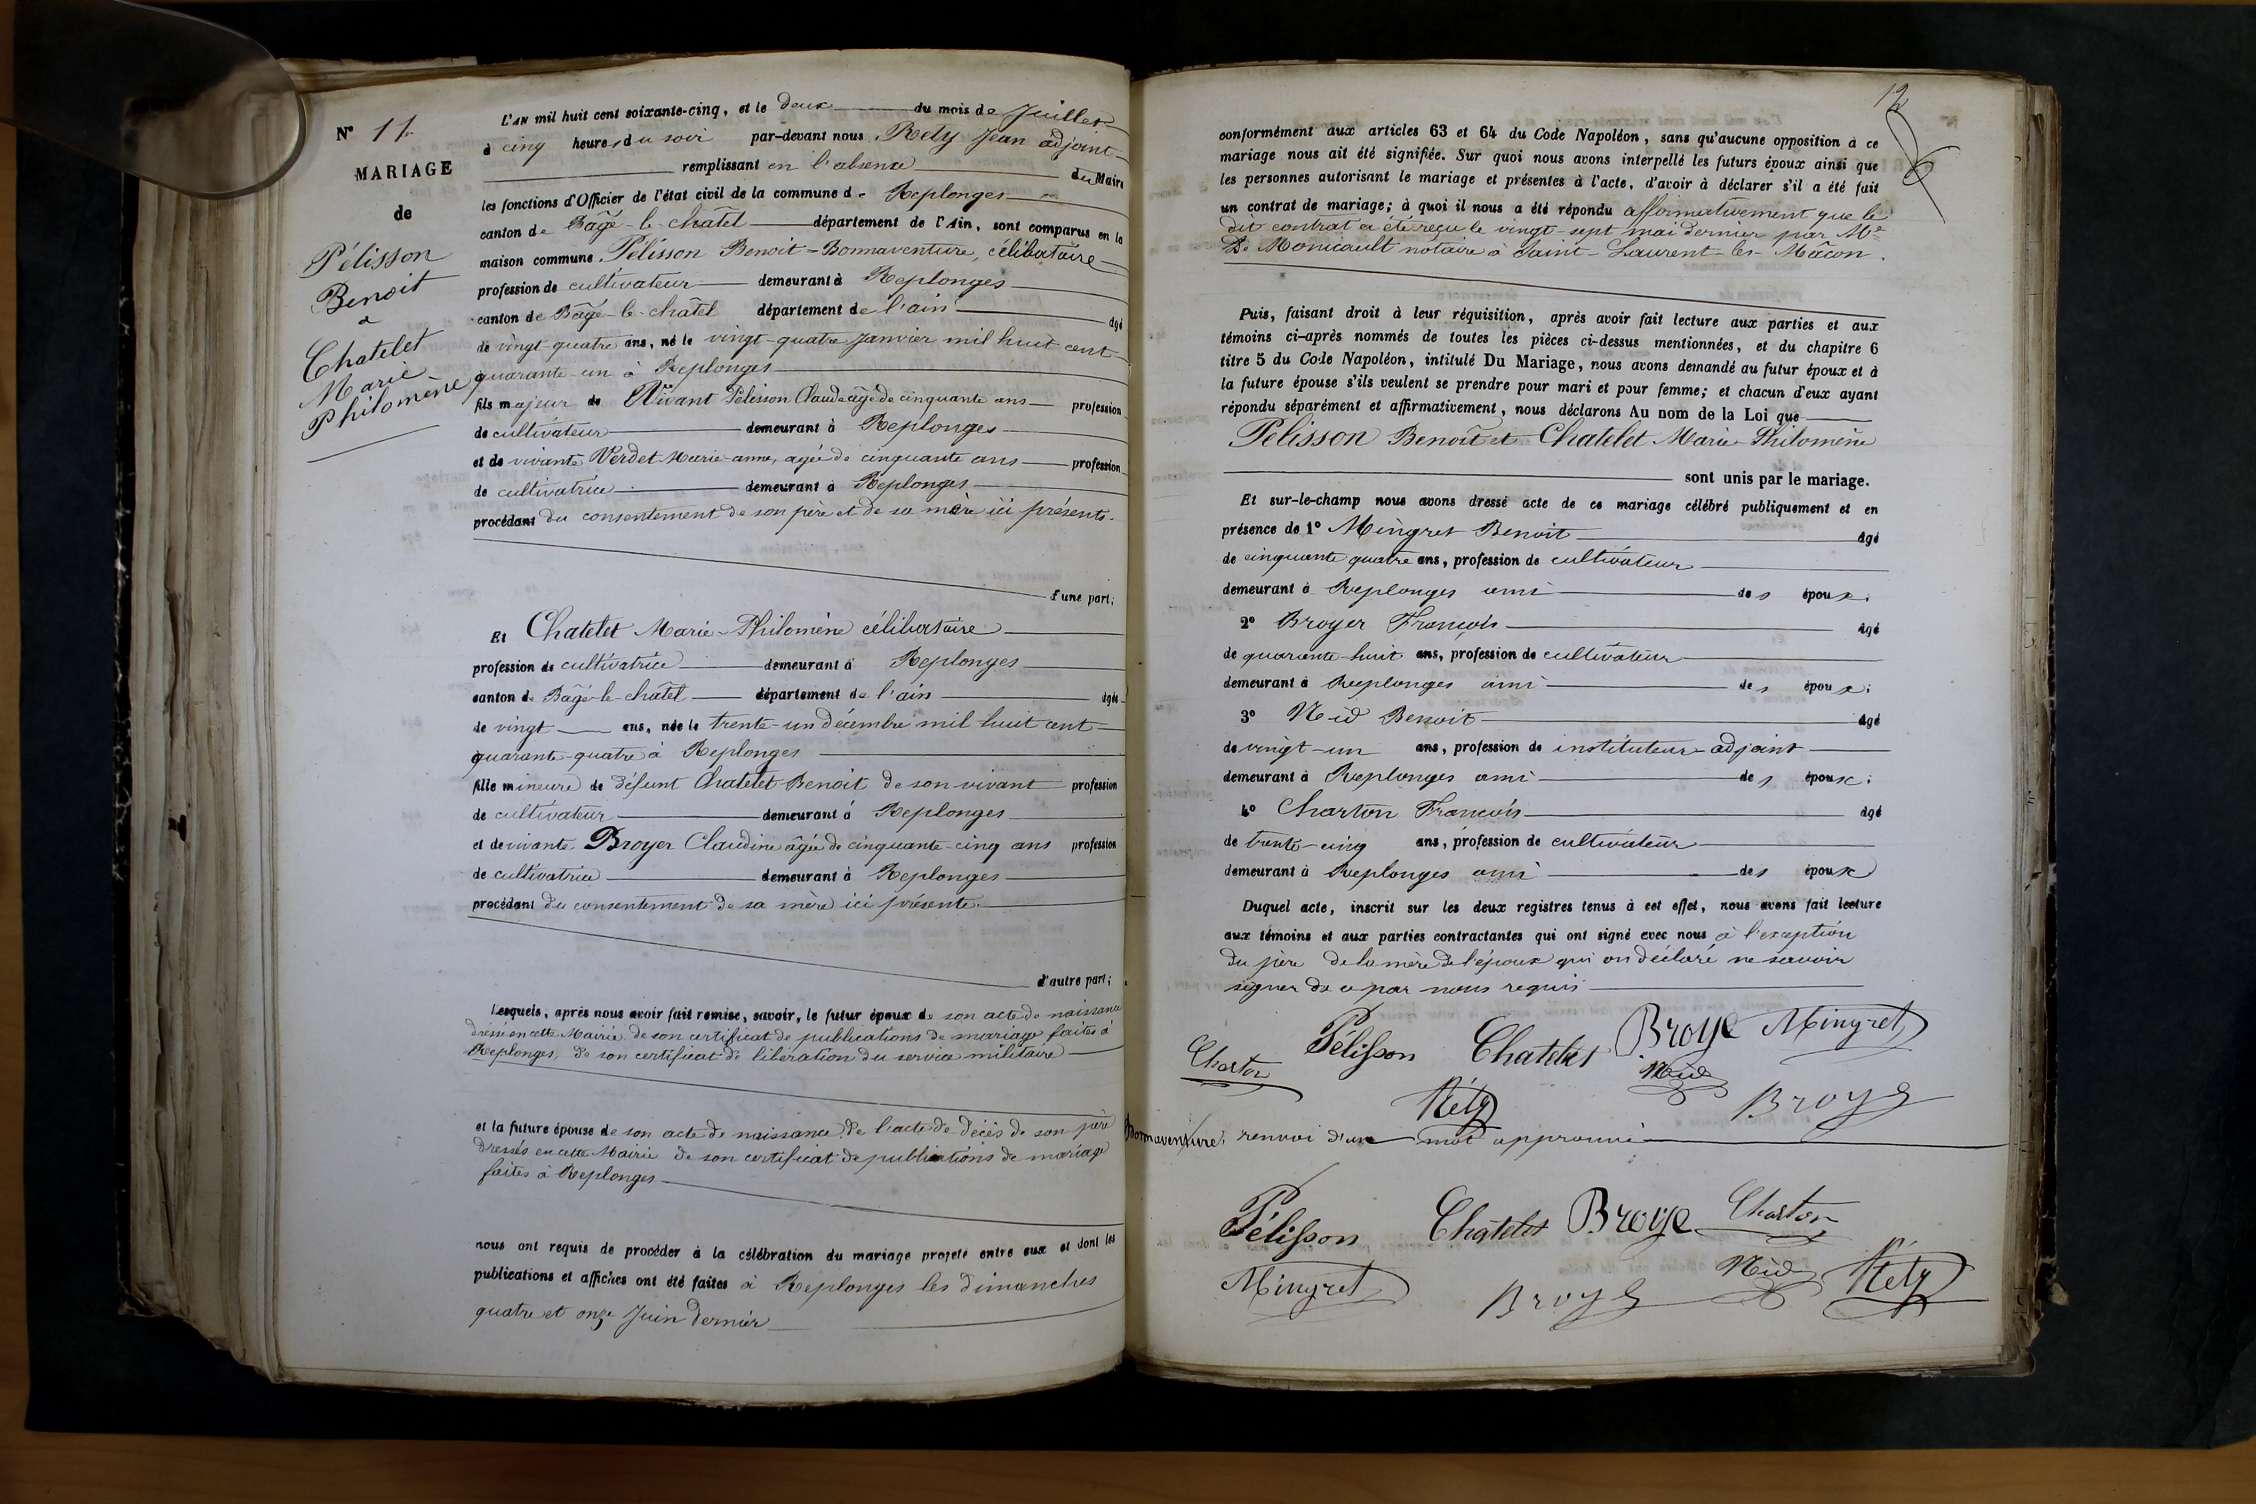 N° 11
MARIAGE
de
Pélisson
Benoit
&
Chatelet
Marie
Philomène
L'AN mil huit cent soixante-cinq, et le deux du mois de Juillet
à cinq heures du soir par-devant nous, Réty Jean adjoint
remplissant en l'absence du Maire
les fonctions d'Officier de l'état civil de la commune de Replonges
canton de Bâgé-le-chatel département de l'Ain, sont comparus en la
maison commune Pélisson Benoit-Bonnaventure, célibataire
profession de cultivateur demeurant à Replonges
canton de Bâgé-le-chatel département de l'ain âgé
de vingt-quatre ans, né le vingt-quatre Janvier mil huit cent
quarante-un à Replonges
fils majeur de Vivant Pélisson Claude agé de cinquante ans profession
de cultivateur demeurant à Replonges
et de vivante Verdet Marie-anne, agée de cinquante ans profession
de cultivatrice demeurant à Replonges
procédant du consentement de son père et de sa mère ici présents.
d'une part;
Et Chatelet Marie-Philomène célibataire
profession de cultivatrice demeurant à Replonges
canton de Bâgé-le-chatel département de l'ain âgée
de vingt ans, née le trente-un décembre mil huit cent
quarante-quatre à Replonges
fille mineure de défunt Chatelet Benoit de son vivant profession
de cultivateur demeurant à Replonges
et de vivante Broyer Claudine âgée de cinquante-cinq ans profession
de cultivatrice demeurant à Replonges
procédant du consentement de sa mère ici présente.
d'autre part;
Lesquels, après nous avoir fait remise, savoir, le futur époux de son acte de naissance
dressé en cette Mairie de son certificat de publications de mariage faites à
Replonges, de son certificat de libération du service militaire
et la future épouse de son acte de naissance, de l'acte de décès de son père
dressés en cette Mairie de son certificat de publications de mariage
faites à Replonges
nous ont requis de procéder à la célébration du mariage projeté entre eux et dont les
publications et affiches ont été faites à Replonges les dimanches
quatre et onze Juin dernier
12
conformément aux articles 63 et 64 du Code Napoléon, sans qu'aucune opposition à ce
mariage nous ait été signifiée. Sur quoi nous avons interpellé les futurs époux ainsi que
les personnes autorisant le mariage et présentes à l'acte, d'avoir à déclarer s'il a été fait
un contrat de mariage; à quoi il nous a été répondu affirmativement que le
dit contrat a été reçu le vingt-sept mai dernier par Me
De Monicault notaire à Saint-Laurent-les-Mâcon.
Puis, faisant droit à leur réquisition, après avoir fait lecture aux parties et aux
témoins ci-après nommés de toutes les pièces ci-dessus mentionnées, et du chapitre 6
titre 5 du Code Napoléon, intitulé Du Mariage, nous avons demandé au futur époux et à
la future épouse s'ils veulent se prendre pour mari et pour femme; et chacun d'eux ayant
répondu séparément et affirmativement, nous déclarons Au nom de la Loi que
Pélisson Benoit et Chatelet Marie Philomène
sont unis par le mariage.
Et sur-le-champ nous avons dressé acte de ce mariage célébré publiquement et en
présence de 1° Mingret Benoit âgé
de cinquante quatre ans, profession de cultivateur
demeurant à Replonges ami des époux;
2° Broyer François âgé
de quarante-huit ans, profession de cultivateur
demeurant à Replonges ami des époux;
3° Nid Benoit âgé
de vingt-un ans, profession de instituteur-adjoint
demeurant à Replonges ami des époux;
4° Charton François âgé
de trente-cinq ans, profession de cultivateur
demeurant à Replonges ami des époux
Duquel acte, inscrit sur les deux registres tenus à cet effet, nous avons fait lecture
aux témoins et aux parties contractantes qui ont signé avec nous à l'exception
du père de la mère de l'époux qui on déclaré ne savoir
signer de ce par nous requis
Pélisson Chatelet Broye Mingret
Charton Nid
Réty Broye
Bonnaventure, renvoi d'un mot approuvé
Pélisson Chatelet Broye Charton
Mingret Broye Nid Réty